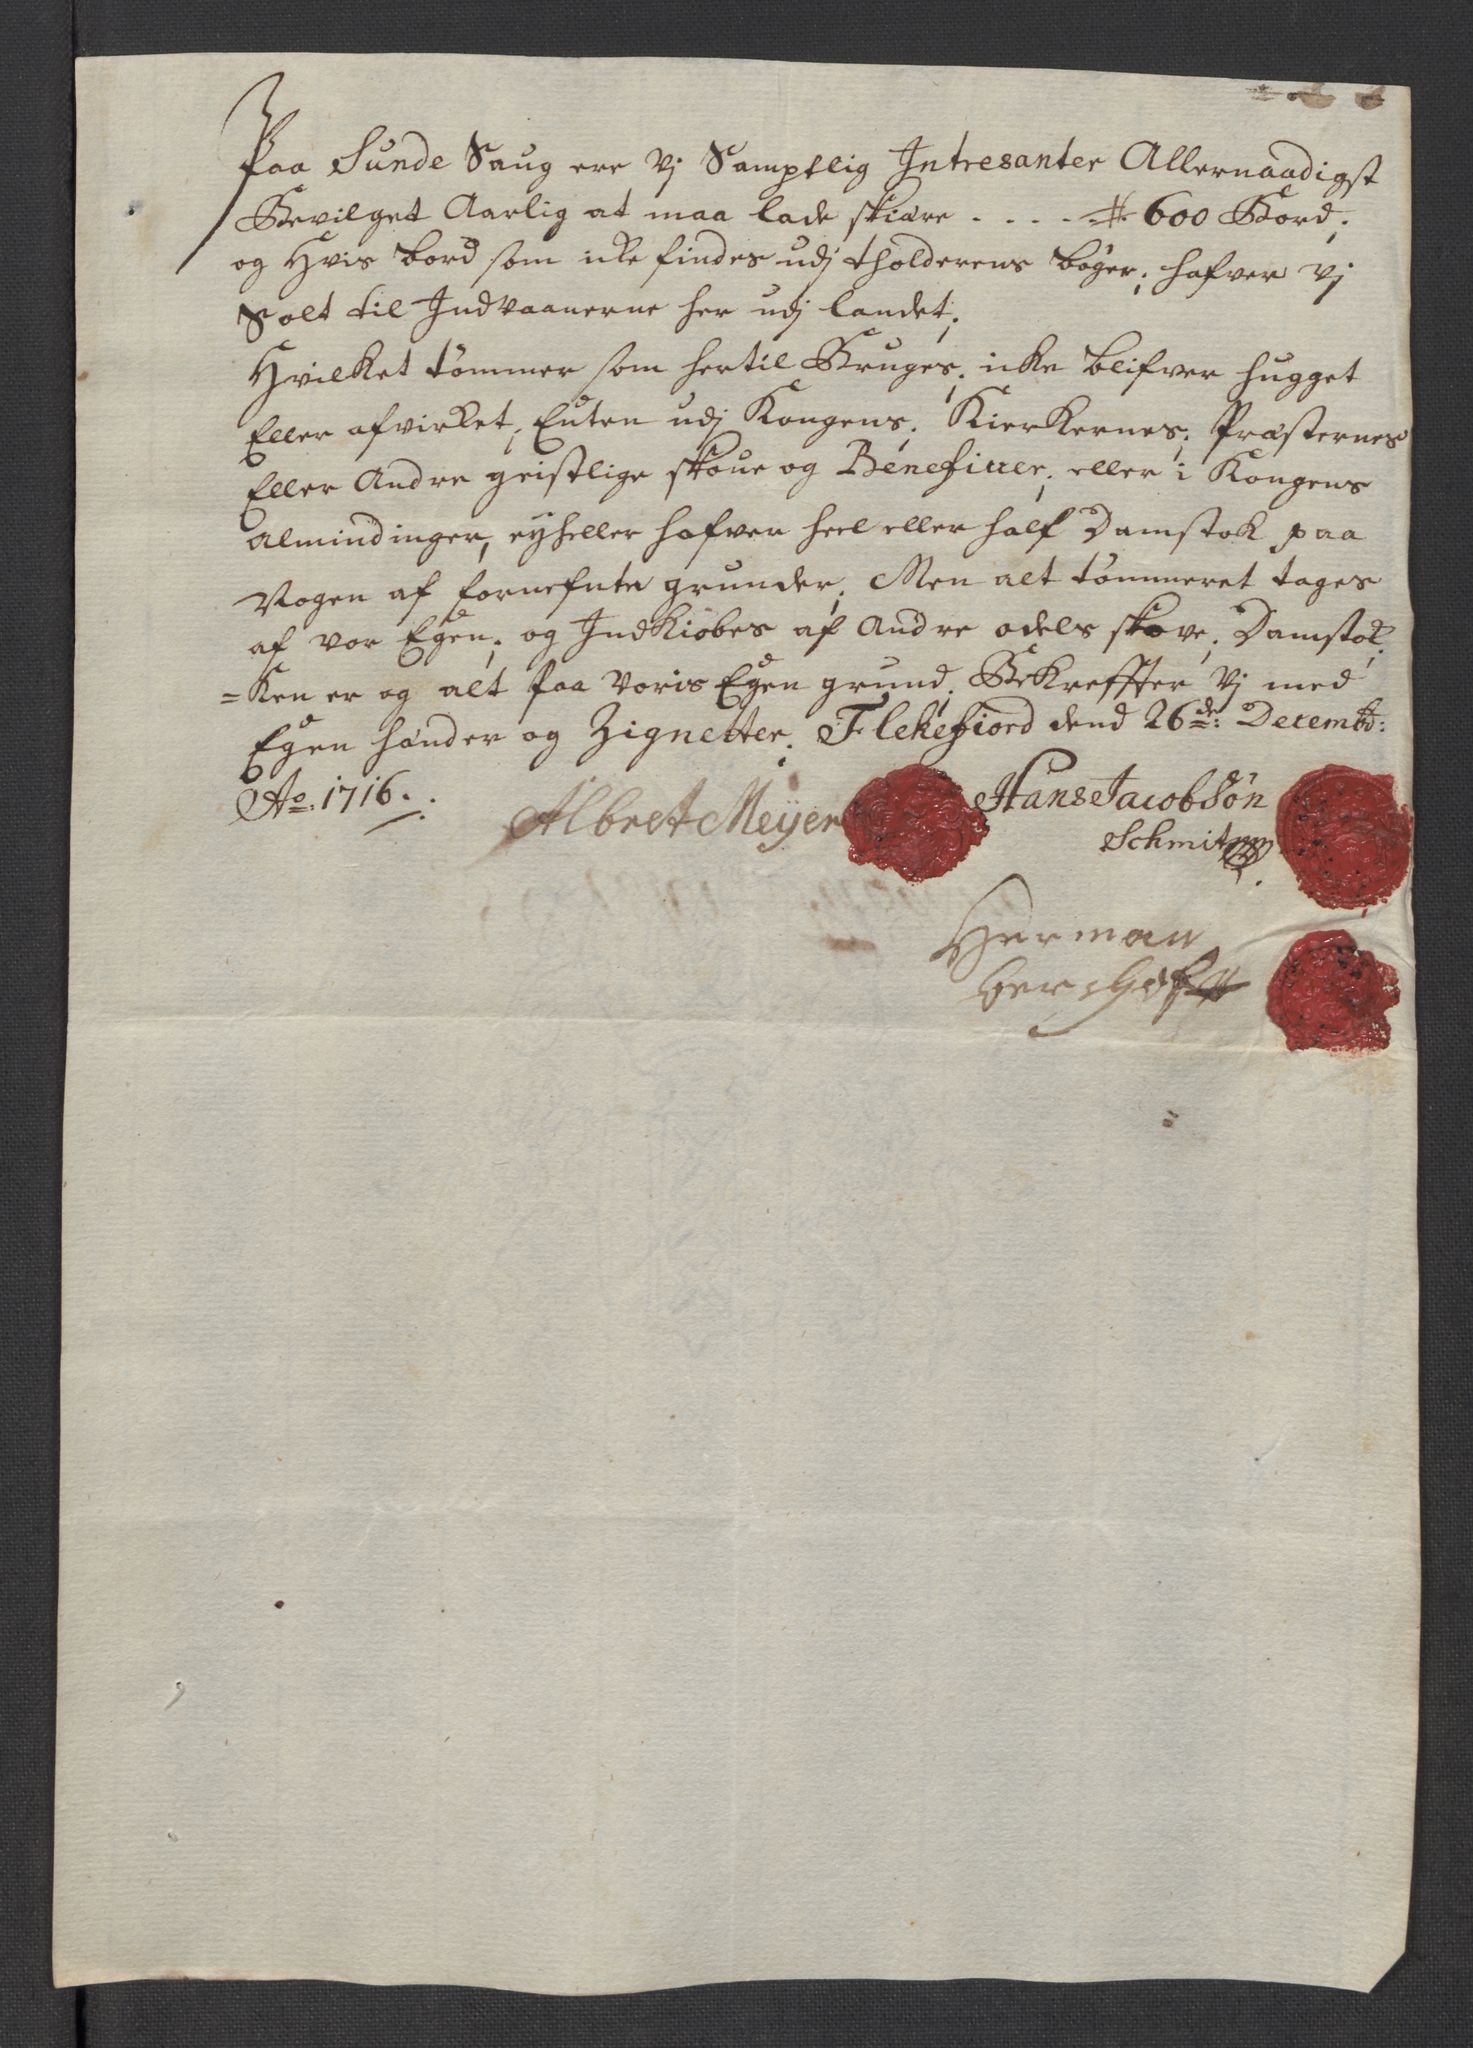 Paa Sunde Saug ere vj Samptlig Intresanter Allernaadigst
Bevilget Aarlig at maa lade skiære . . . . # 600 Bord;
og Hvis bord som icke findes udj tholderens bøger; hafver vj
Solt til Indvaanerne her udj landet;
Hvilket tömmer som hertil Bruges; icke blifver hugget
Eller afvirket; Enten udj Kongens; Kierkernes; Præsternes
Eller Andre geistlige skoue og Beneficier; eller i Kongens
Almindinger, eyheller hafver heel eller half Damstok paa
Nogen af fornefnte grunder; Men alt tömmeret tages
af vor Egen; og Indkiöbes af Andre odels skove; Damstok
=Ken er og alt paa voris Egen grund; Bekreffter vj med
Egen hænder og Zignetter. Flekefiord dend 26de: Decembd:
Ao: 1716.
Albret Meÿer
Hans Jacobsön
Schmit
Herman